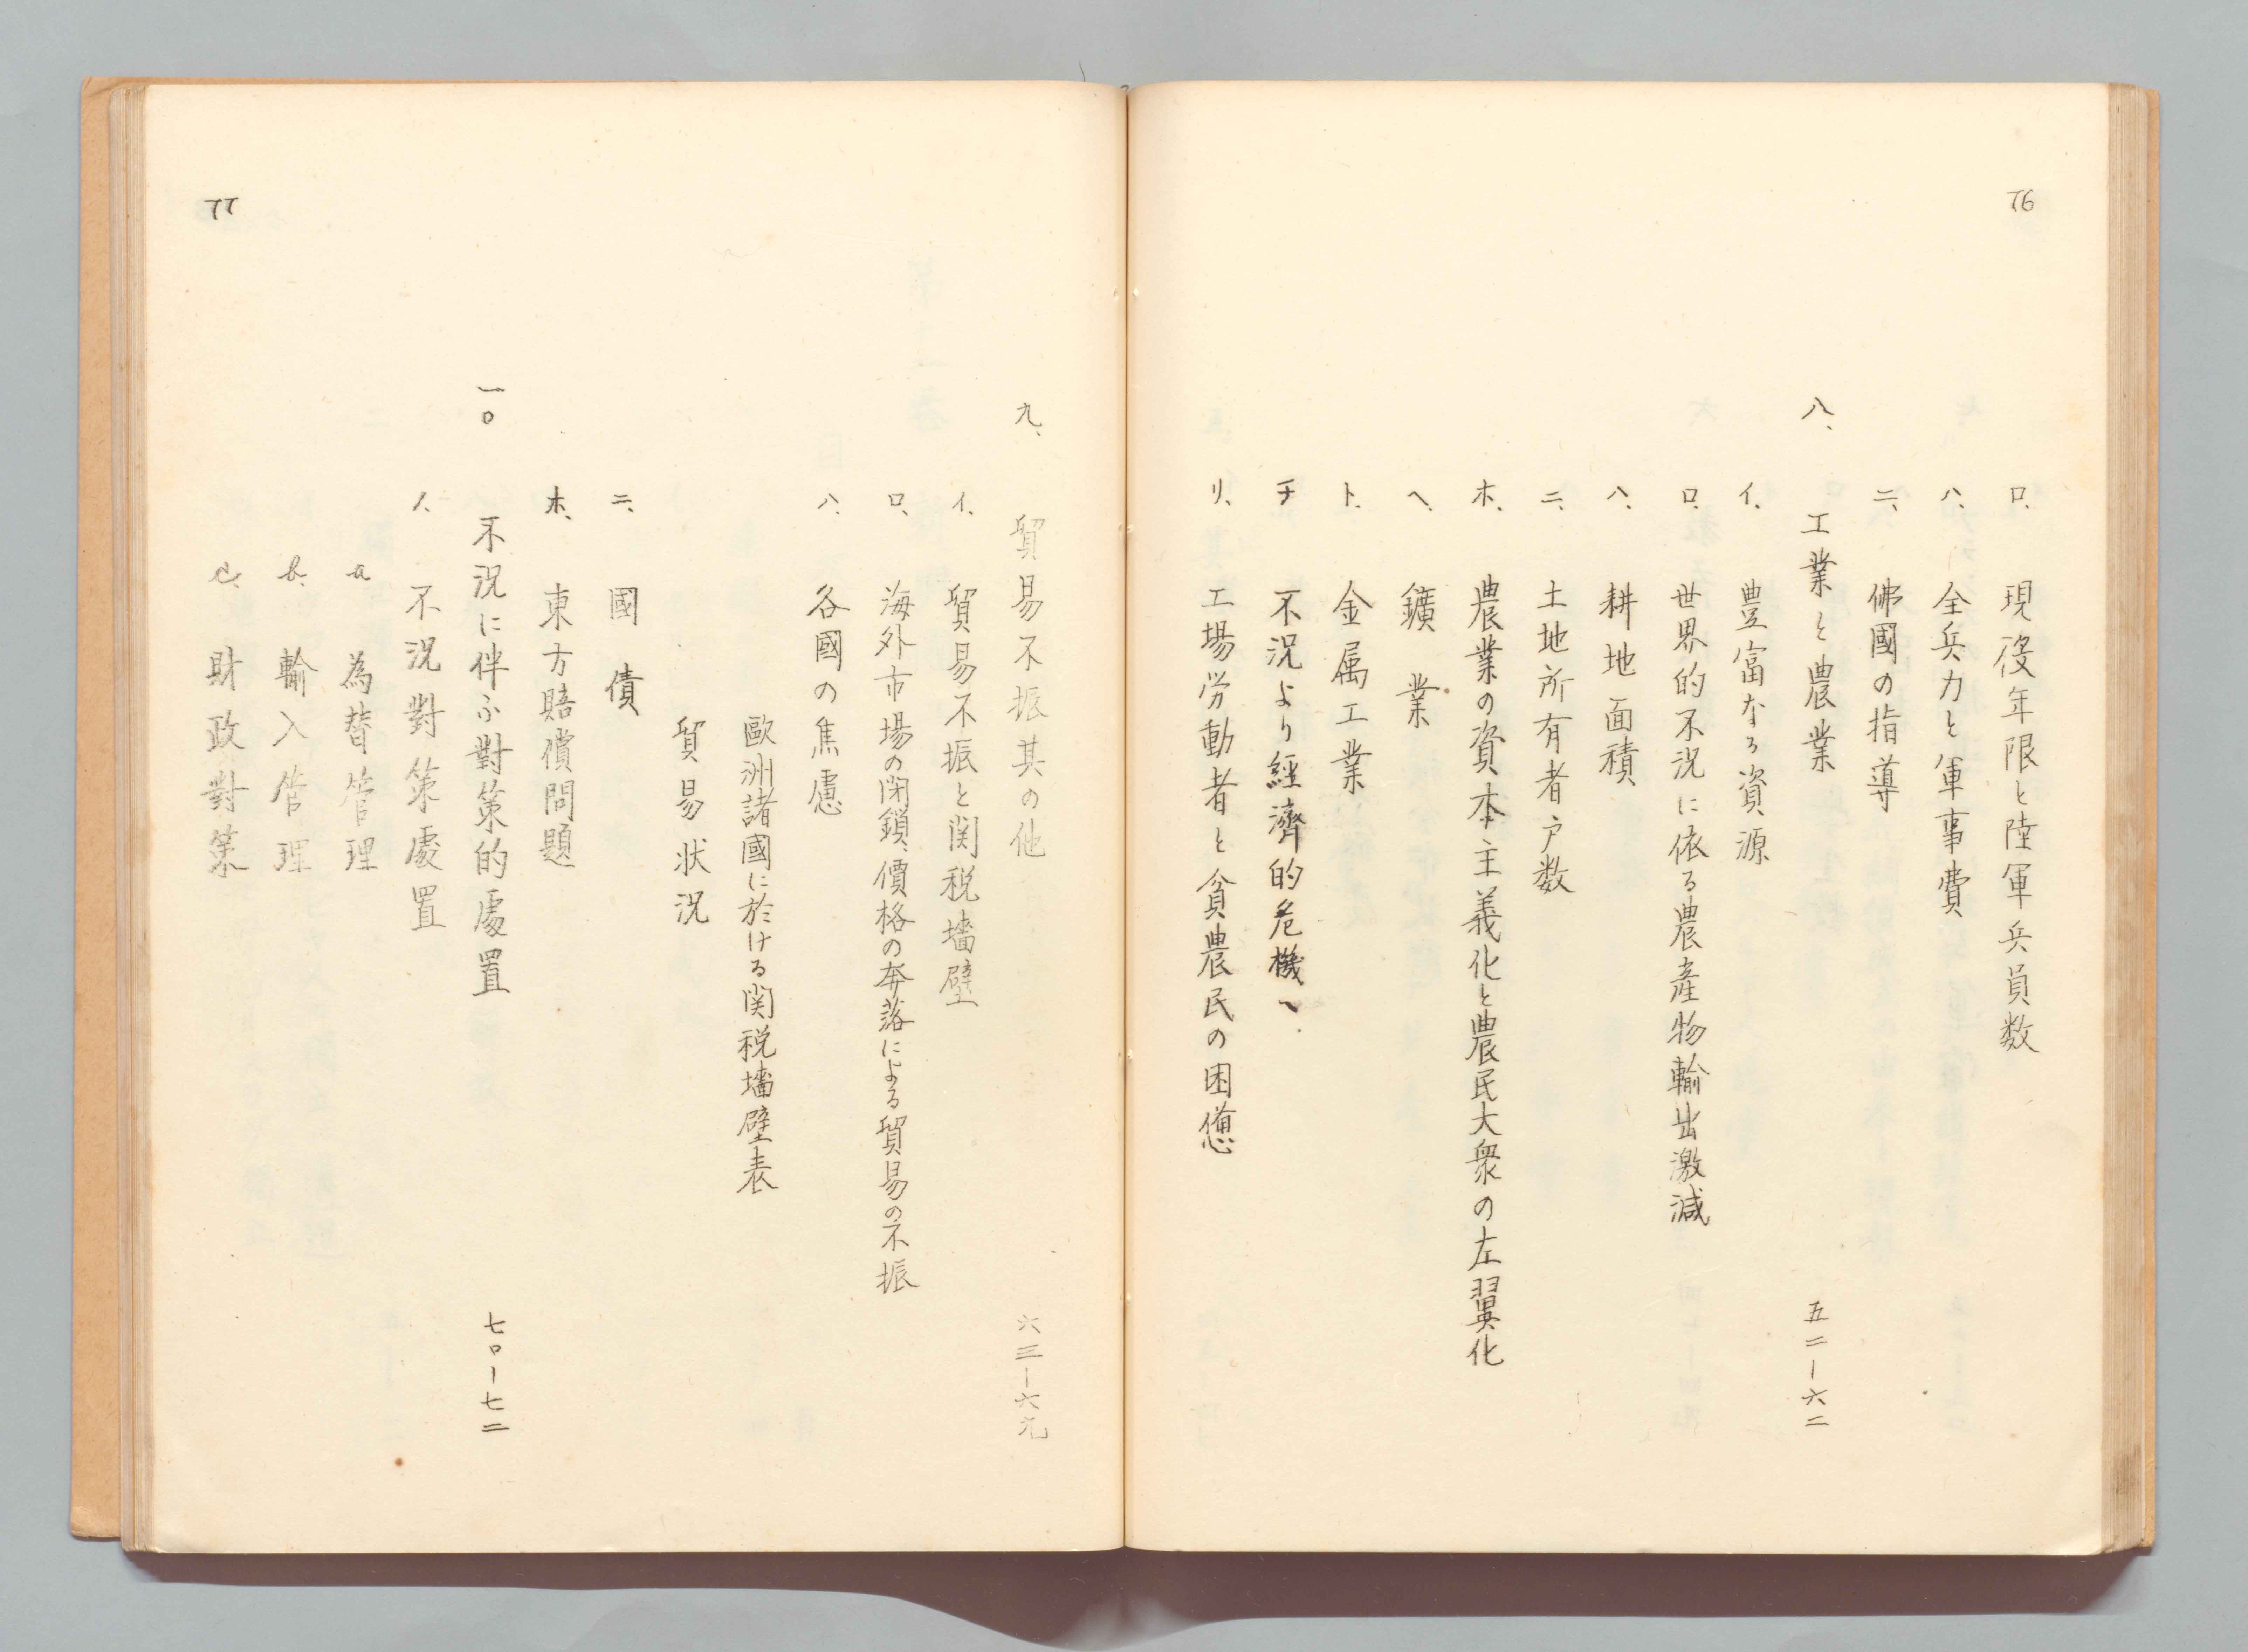 76
ロ、現役年限と陸軍兵員数
ハ、全兵力と軍事費
ニ、佛國の指導
八、工業と農業 五二ー六二
イ、豊富なる資源
ロ、世界的不況に依る農産物輸出激減
ハ、耕地面積
ニ、土地所有者戸数
ホ、農業の資本主義化と農民大衆の左翼化
ヘ、鑛業
ト、金属工業
チ 不況より經濟的危機へ
リ、工場労動者と貧農民の困憊
九、貿易不振其の他 六三ー六九
イ、貿易不振と関税墻壁
ロ、海外市場の閉鎖、價格の奔落による貿易の不振
ハ、各國の焦慮
歐洲諸國に於ける関税墻壁表
貿易状況
ニ、國債
ホ、東方賠償問題
一〇 不況に伴ふ對策的處置 七〇ー七二
イ、不況對策處置
a 為替管理
b. 輸入管理
c. 財政對策
77